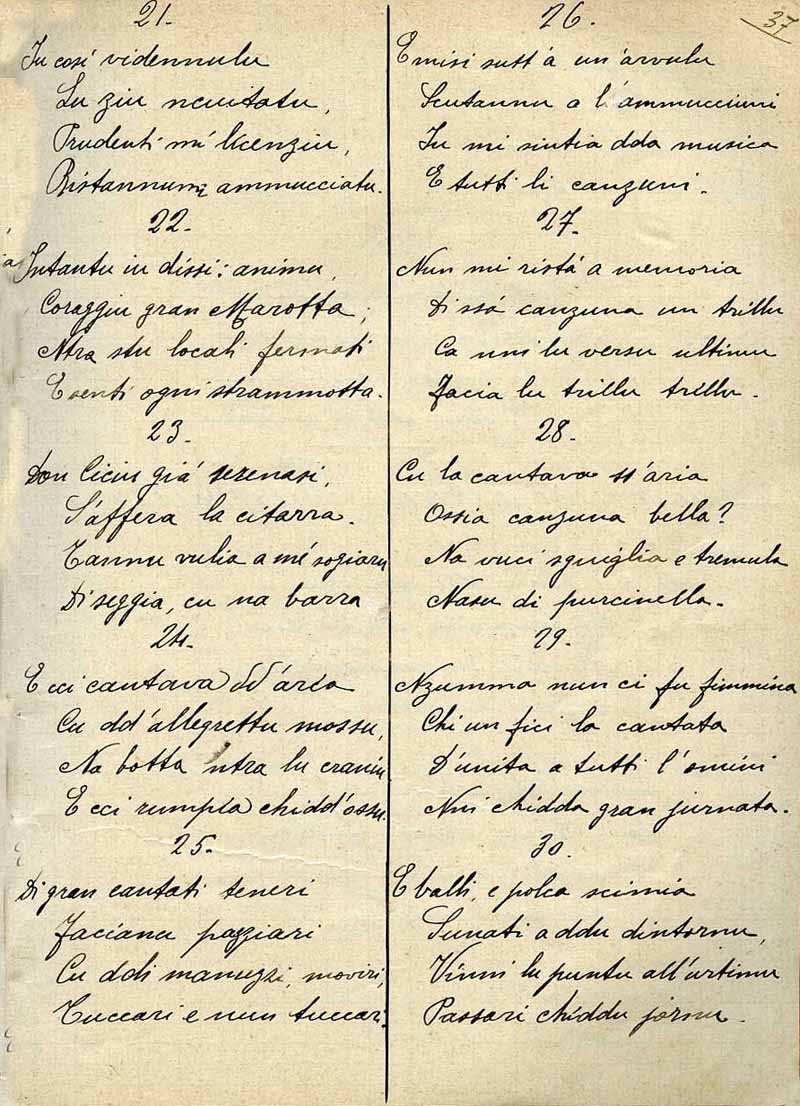 37
21.
Iu cosí vidennulu
Lu ziu ncuitatu,
Prudenti mi licenziu,
Ristannumi ammucciatu.
22.
Intantu iu dissi: animu,
Coraggiu gran Marotta;
Ntra stu locali fermati
E senti ogni strammotta.
23.
Don Ciciu giá serenasi,
S'afferra la citarra.
Tannu vulia a mé sogiaru
Di seggia, cu na barra
24.
E cci cantava dd'aria
Cu dd'allegrettu mossu,
Na botta 'ntra lu craniu
E cci rumpia chidd'ossu.
25.
Di gran cantati teneri
Facianu pazziari
Cu ddi manuzzi, moviri,
Tuccari e nun tuccari.
26.
E misi sutt'a un'arvulu
Scutannu a l'ammucciuni
Iu mi sintia dda musica
E tutti li canzuni.
27.
Nun mi ristá a memoria
Di ssá canzuna un trillu
Ca nni lu versu ultimu
Facia lu trillu trillu.
28.
Cu la cantava ss'aria
Ossia canzuna bella?
Na vuci squiglia e tremula
Nasu di purcinella.
29.
Nzumma nun ci fu fimmina
Chi un fici la cantata
D'unita a tutti l'omini
Nni chidda gran jurnata.
30.
E balli, e polca scimia
Sunati a ddu dintornu,
Vinni lu puntu all'urtimu
Passari chiddu jornu.